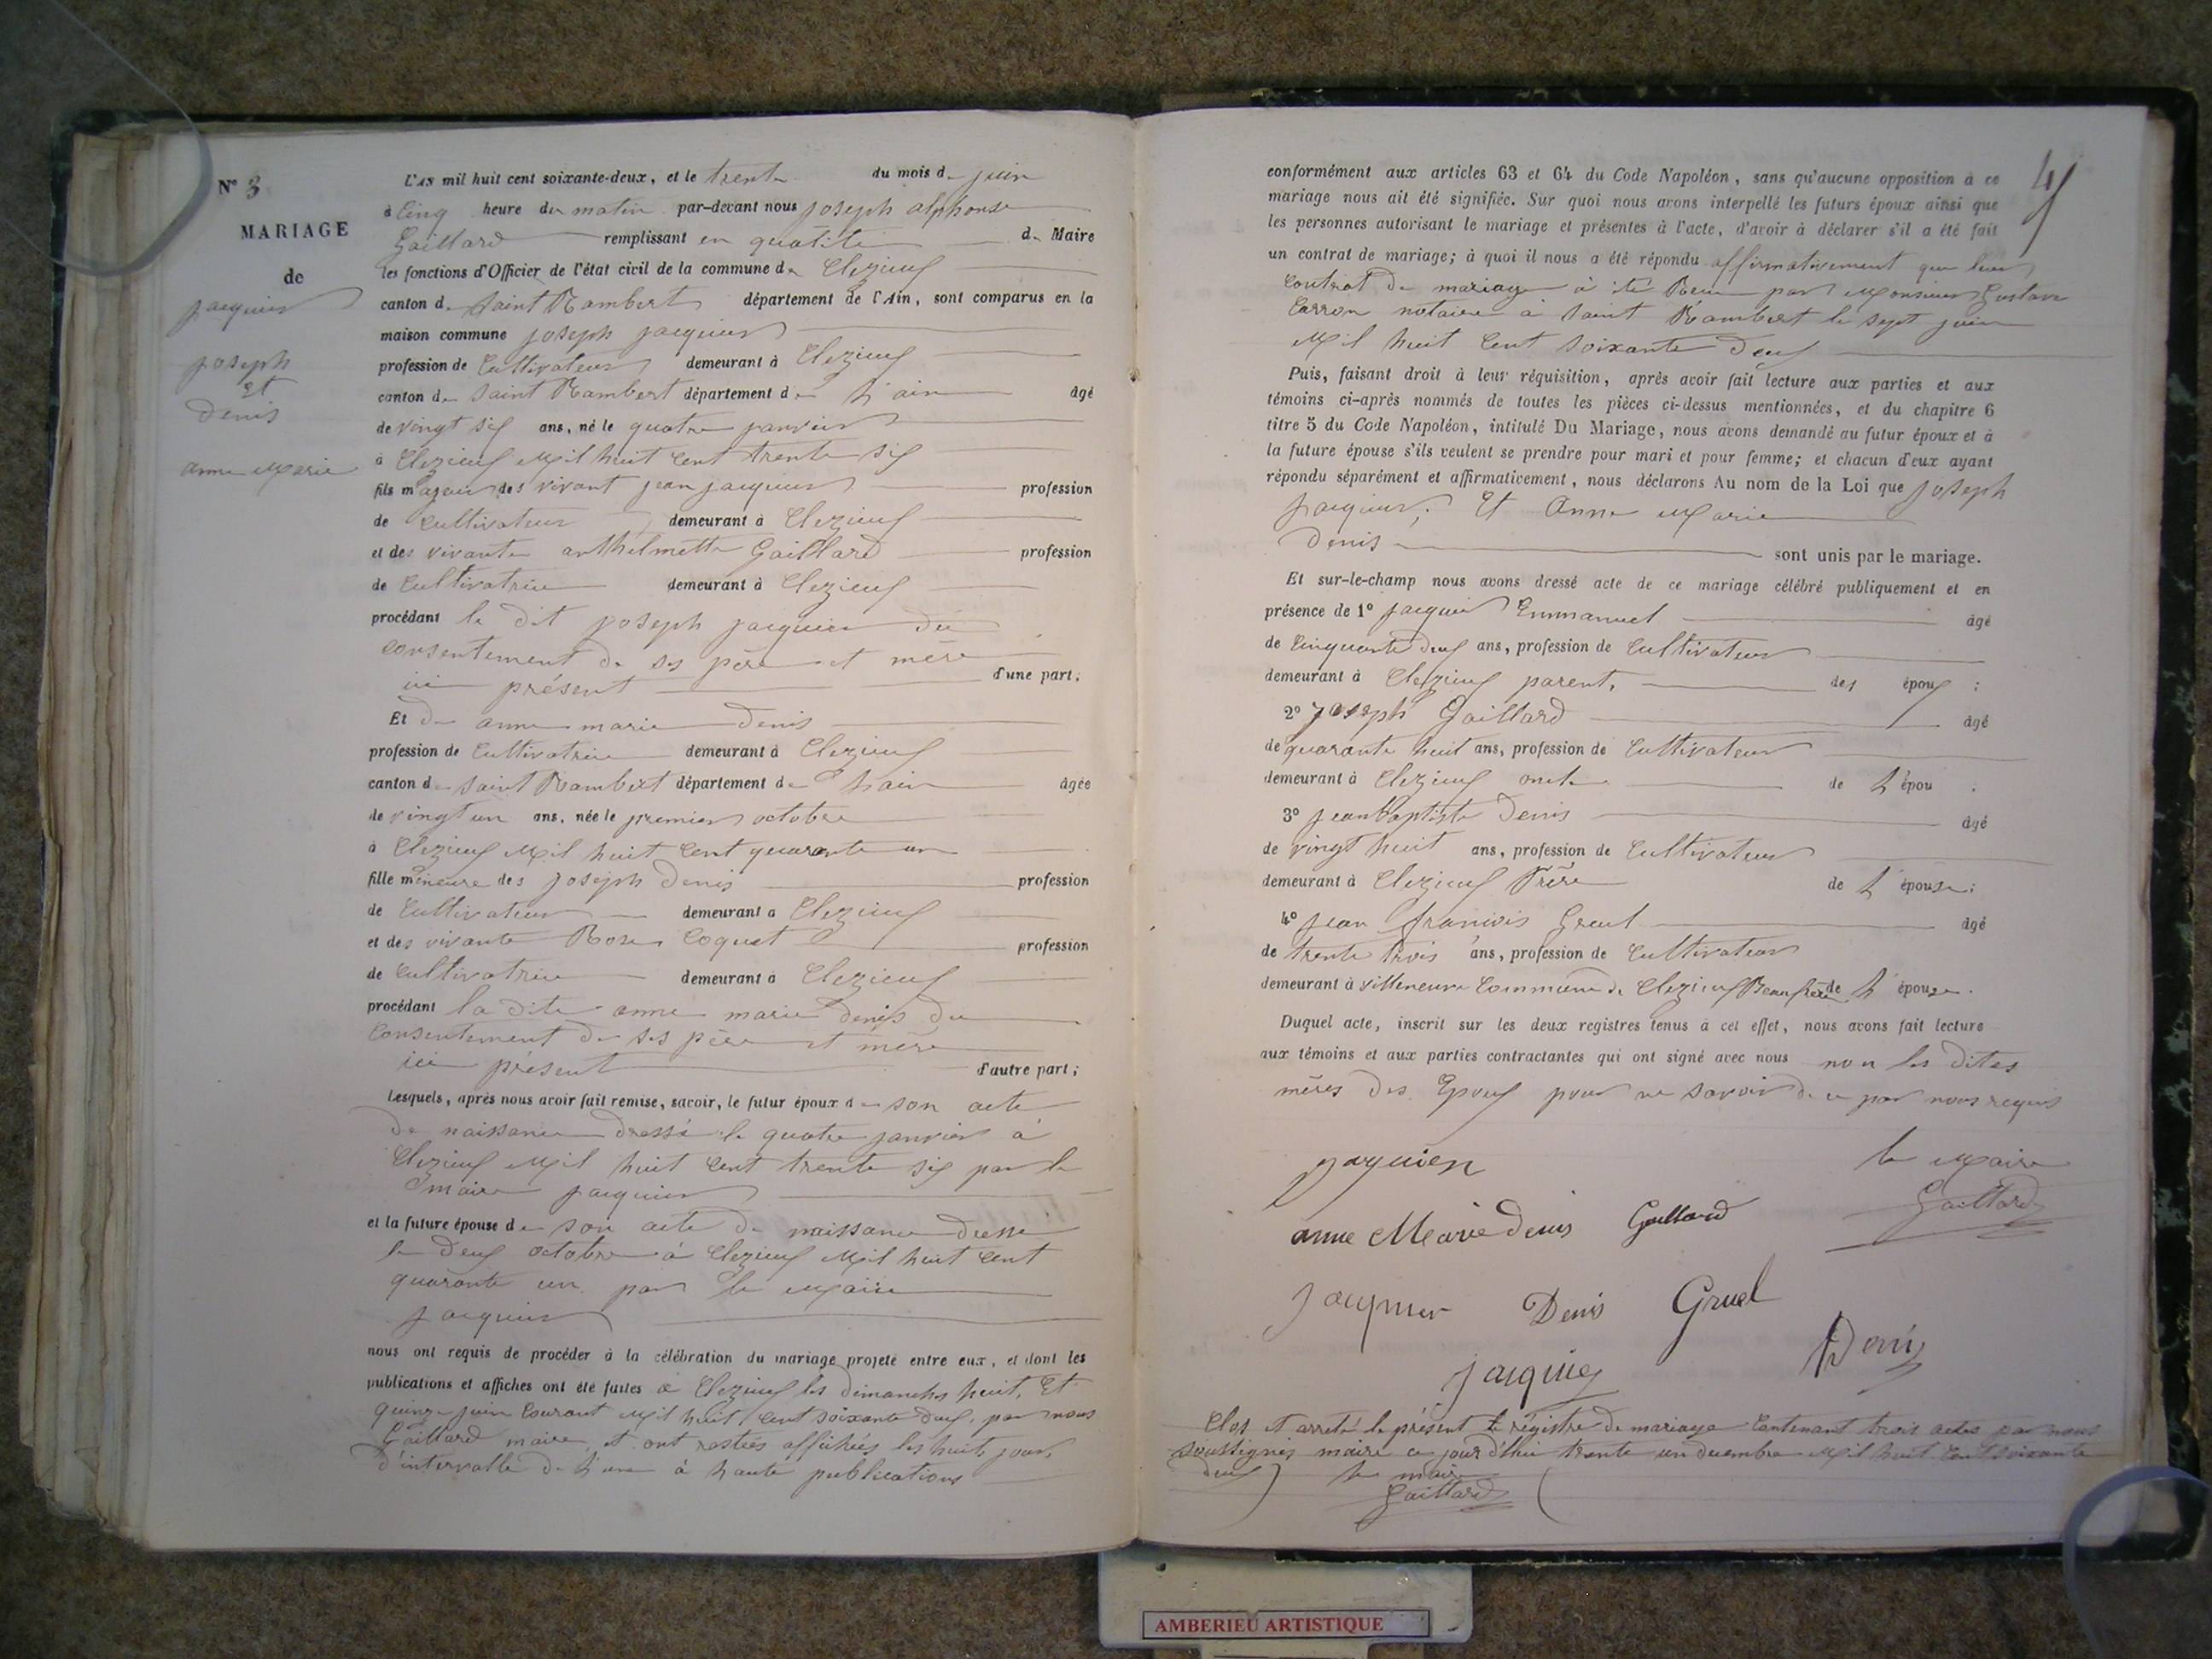 N° 3
MARIAGE
de
jacquier
joseph
Et
denis
anne Marie
L'AN mil huit cent soixante-deux, et le trente du mois de juin
à Cinq heure du matin par-devant nous joseph alphonse
Gaillard remplissant en qualité de Maire
les fonctions d'Officier de l'état civil de la commune de Clezieux
canton de Saint Rambert département de l'Ain, sont comparus en la
maison commune joseph jacquier
profession de Cultivateur demeurant à Clezieux
canton de Saint Rambert département de L'ain âgé
de vingt six ans, né le quatre janvier
à Clezieux Mil huit Cent trente six
fils majeur des vivant jean jacquier profession
de Cultivateur demeurant à Clezieux
et des vivante anthelmette Gaillard profession
de Cultivatrice demeurant à Clezieux
procédant le dit joseph jacquier du
consentement de ses père et mère
ici présent d'une part;
Et de anne marie denis
profession de Cultivatrice demeurant à Clezieux
canton de Saint Rambert département de L'ain âgée
de vingt un ans, née le premier octobre
à Clezieux Mil huit Cent quarante un
fille mineure des joseph denis profession
de Cultivateur demeurant à Clezieux
et des vivante Rose Coquet profession
de Cultivatrice demeurant à Clezieux
procédant la dite anne marie denis du
Consentement de ses père et mère
ici présent d'autre part;
Lesquels, après nous avoir fait remise, savoir, le futur époux de son acte
de naissance dressé le quatre janvier à
Clezieux Mil huit Cent trente six par le
maire jacquier
et la future épouse de son acte de naissance dressé
le deux octobre à Clezieux Mil huit Cent
quarante un par le Maire
jacquier
nous ont requis de procéder à la célébration du mariage projeté entre eux, et dont les
publications et affiches ont été faites à Clezieux les dimanches huit, Et
quinze juin Courant Mil huit Cent soixante deux, par nous
Gaillard maire et ont restées affichées les huit jours
d'intervalle de L'une à L'autre publications
4
conformément aux articles 63 et 64 du Code Napoléon, sans qu'aucune opposition à ce
mariage nous ait été signifiée. Sur quoi nous avons interpellé les futurs époux ainsi que
les personnes autorisant le mariage et présentes à l'acte, d'avoir à déclarer s'il a été fait
un contrat de mariage; à quoi il nous a été répondu affirmativement que leur
Contrat de mariage à été Reçu par Monsieur Gustave
Carron notaire à Saint Rambert le sept juin
Mil huit Cent soixante Deux
Puis, faisant droit à leur réquisition, après avoir fait lecture aux parties et aux
témoins ci-après nommés de toutes les pièces ci-dessus mentionnées, et du chapitre 6
titre 5 du Code Napoléon, intitulé Du Mariage, nous avons demandé au futur époux et à
la future épouse s'ils veulent se prendre pour mari et pour femme; et chacun d'eux ayant
répondu séparément et affirmativement, nous déclarons Au nom de la Loi que joseph
jacquier; Et Anne Marie
Denis sont unis par le mariage.
Et sur-le-champ nous avons dressé acte de ce mariage célébré publiquement et en
présence de 1° jacquier Emmanuel âgé
de Cinquante deux ans, profession de Cultivateur
demeurant à Clezieux parent, des époux ;
2° joseph Gaillard âgé
de quarante huit ans, profession de Cultivateur
demeurant à Clezieux oncle de L'épou ;
3° jean Baptiste Denis âgé
de vingt huit ans, profession de Cultivateur
demeurant à Clezieux Frère de L'épouse;
4° jean francois Gruel âgé
de trente trois ans, profession de Cultivateur
demeurant à villeneuve Commune de Clezieux Beau frère de L'épouse.
Duquel acte, inscrit sur les deux registres tenus à cet effet, nous avons fait lecture
aux témoins et aux parties contractantes qui ont signé avec nous non les dites
mères des Epoux pour ne savoir de ce par nous requis
jaquier
le Maire
Gaillard
anne Marie denis Gaillard
jacquier Denis Gruel
Denis
jacquier
Clos et arreté le présent registre de mariage Contenant trois actes par nous
soussignés maire ce jour d'hui trente un decembre Mil huit Cent soixante
deux le maire
Gaillard
AMBERIEU ARTISTIQUE